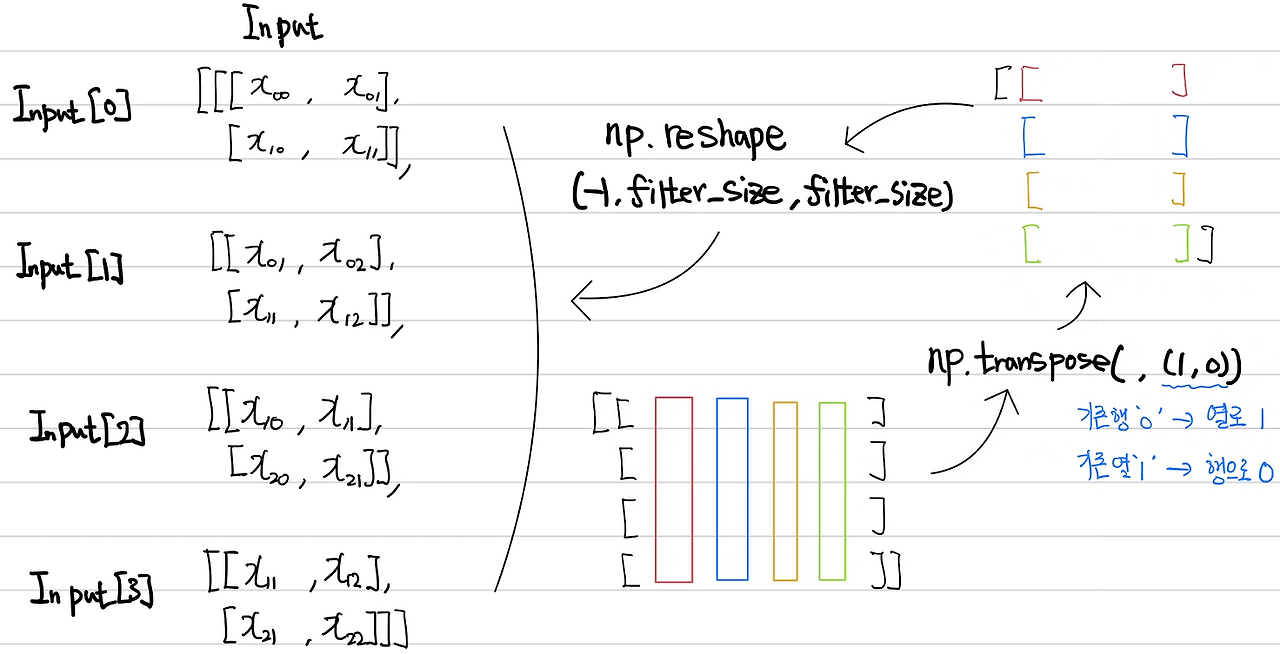 Input
Input[0]
[[[x₀₀ , x₀₁],
[x₁₀ , x₁₁]],
Input[1]
[[x₀₁ , x₀₂],
[x₁₁ , x₁₂]],
Input[2]
[[x₁₀ , x₁₁],
[x₂₀ , x₂₁]],
Input[3]
[[x₁₁ , x₁₂],
[x₂₁ , x₂₂]]]
np.reshape
(-1, filter_size, filter_size)
[[ ]
[ ]
[ ]
[ ]]
np.transpose( , (1,0))
기존행'0' → 열로 1
기존열'1' → 행으로 0
[[ ]
[ ]
[ ]
[ ]]